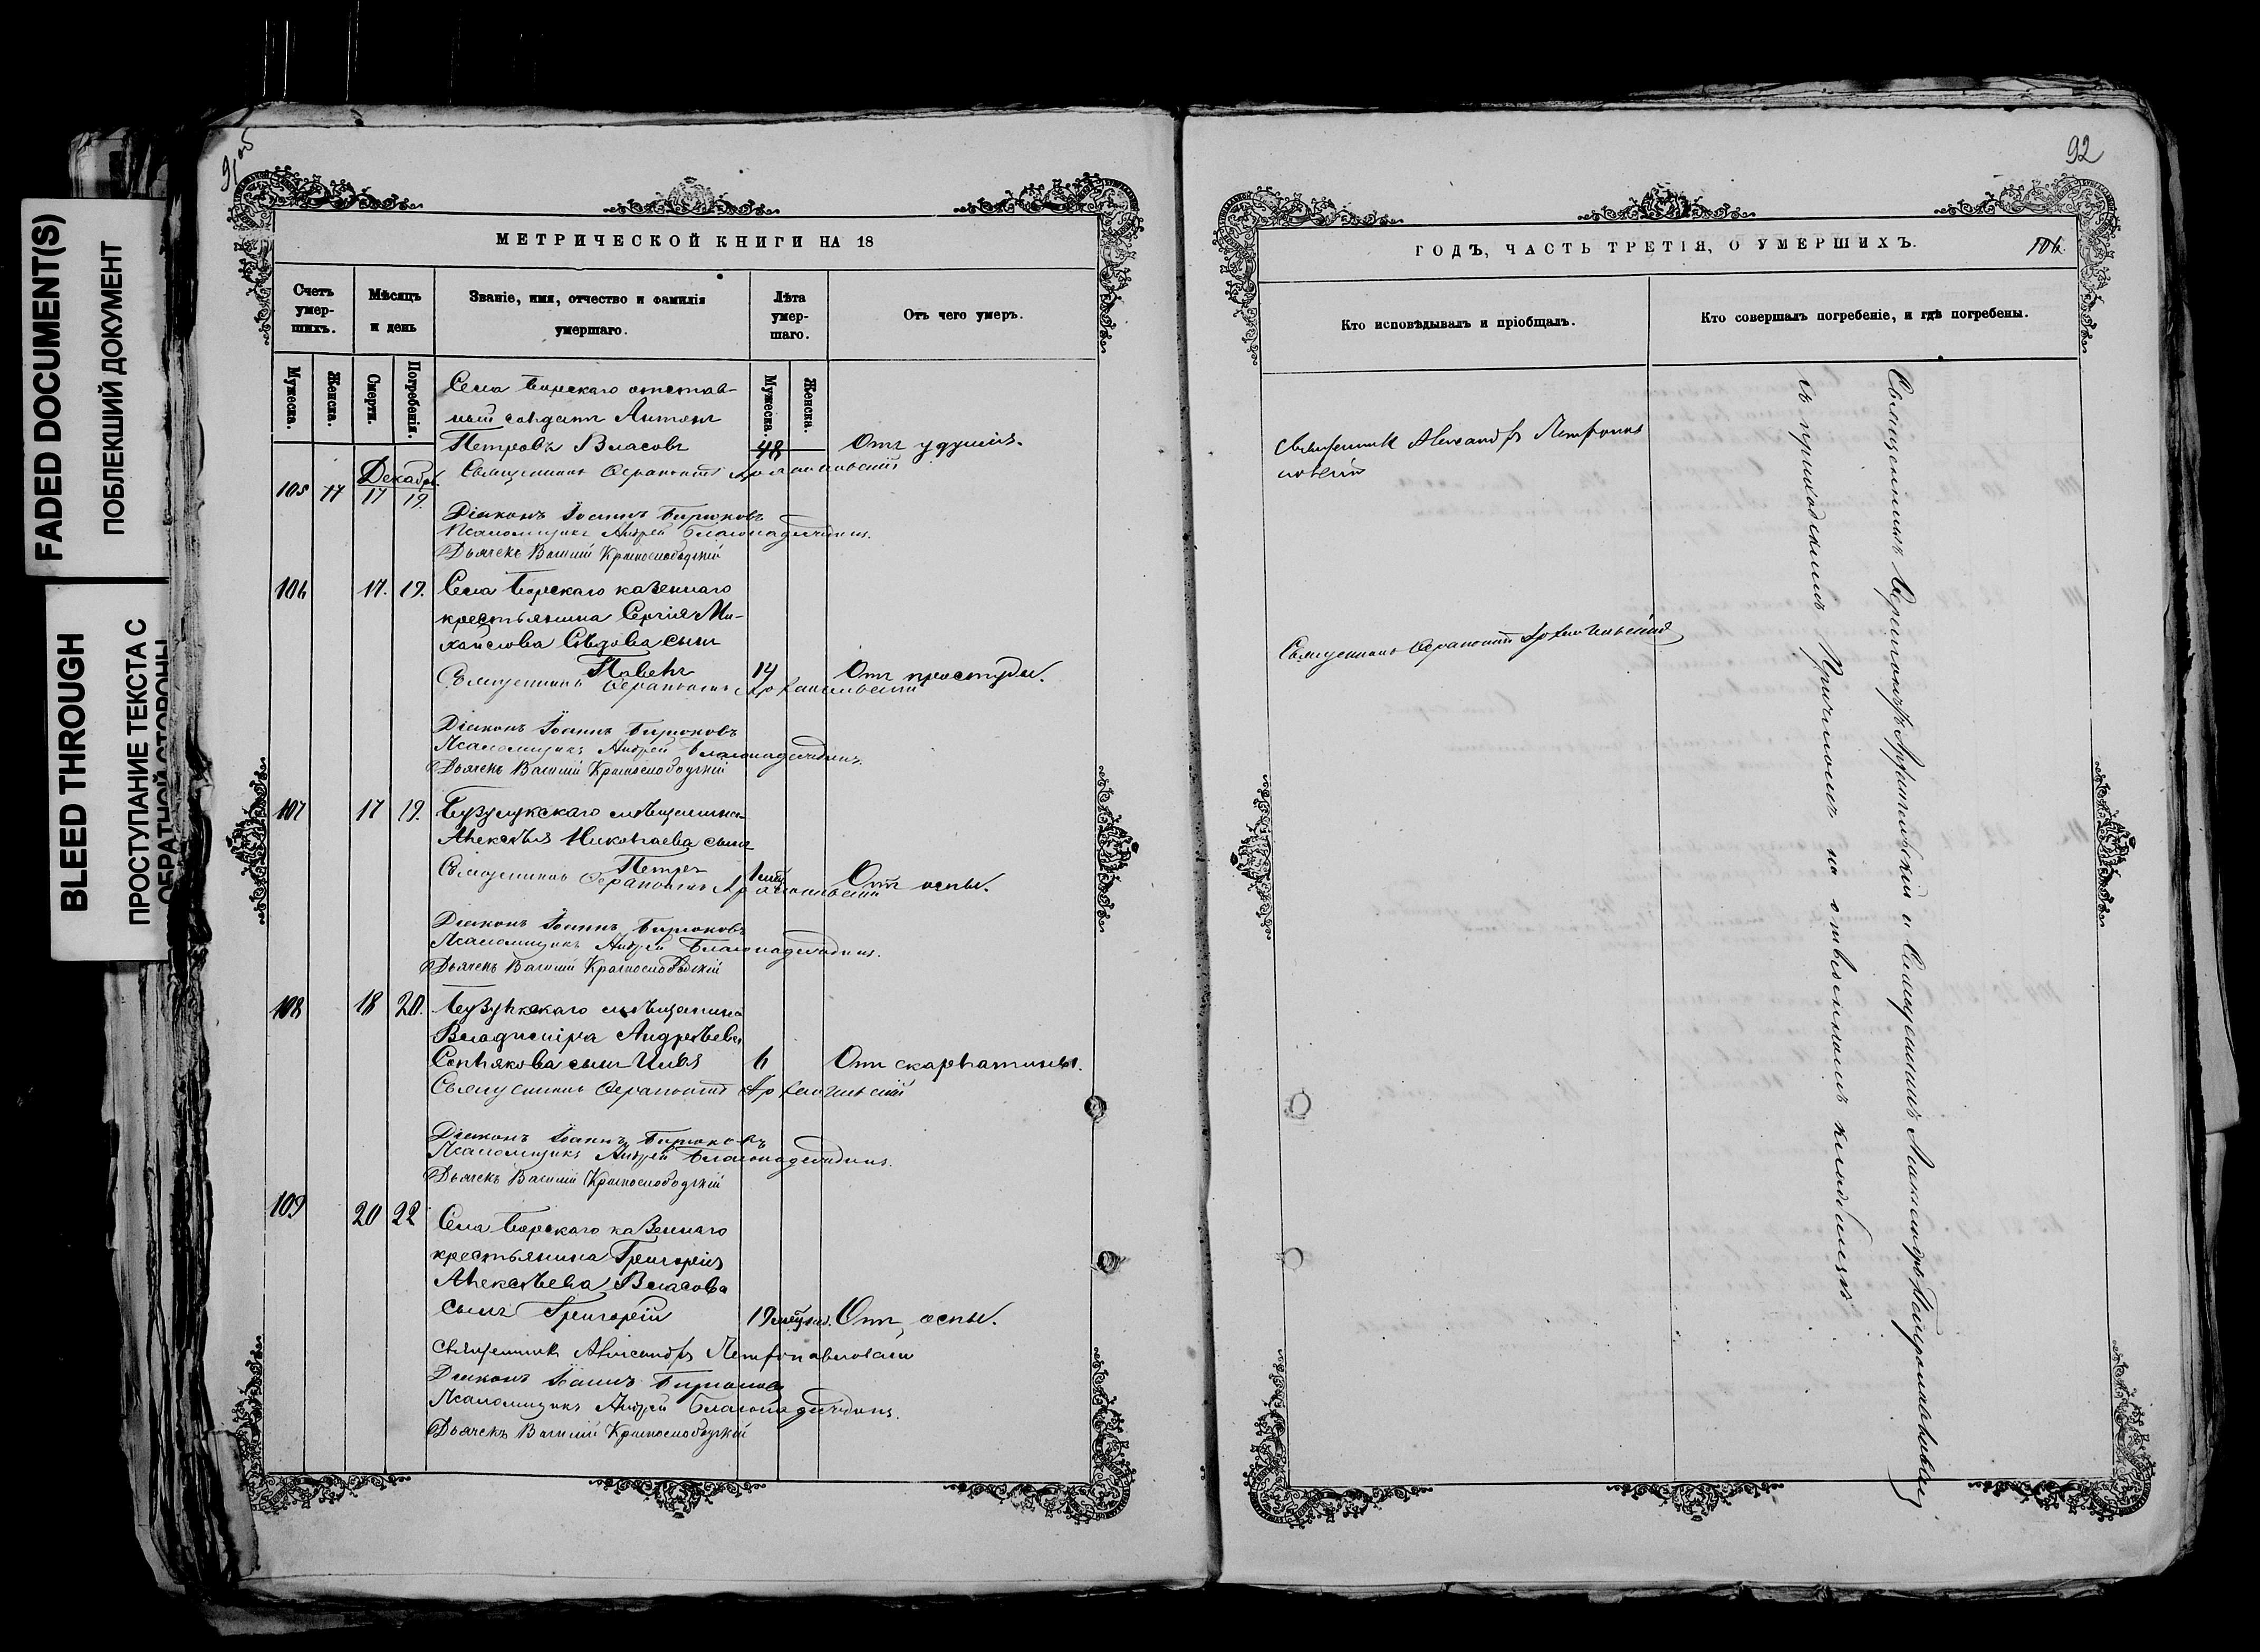 FADED DOCUMENT(S)
ПОБЛЕКШИЙ ДОКУМЕНТ
BLEED THROUGH
ПРОСТУПАНИЕ ТЕКСТА С
ОБРАТНОЙ СТОРОНЫ
91об
МЕТРИЧЕСКОЙ КНИГИ НА 18
Счетъ умер-шихъ.
Мѣсяцъ и день
Званіе, имя, отчество и фамилія умершаго.
Лѣта умер-шаго.
Отъ чего умеръ.
Мужеска.
Женска.
Смерти.
Погребенія.
Мужеска.
Женска.
Села Борскаго отстав-
ный солдатъ Антонъ
Петровъ Власовъ 48 Отъ удушія.
Декабр.
105 17 17 19.
Священникъ Серапіонъ Архангельскій
Діаконъ Іоаннъ Бирюковъ
Псаломщикъ Андрей Благонадеждинъ.
Дьячекъ Василій Краснослободскій
106 17. 19. Села Борскаго казеннаго
крестьянина Сергія Ми-
хайлова Сѣдова сынъ
Павелъ 14 Отъ простуды.
Священникъ Серапіонъ Архангельскій
Діаконъ Іоаннъ Бирюковъ
Псаломщикъ Андрей Благонадеждинъ.
Дьячекъ Василій Краснослободскій
107 17 19. Бузулукскаго мѣщанина
Алексѣя Николаева сынъ
Петръ Отъ оспы.
Священникъ Серапіонъ Архангельскій
Діаконъ Іоаннъ Бирюковъ
Псаломщикъ Андрей Благонадеждинъ.
Дьячекъ Василій Краснослободскій
108 18 20. Бузулкскаго мѣщанина
Владиміра Андреѣева
сынъ Илія 6 Отъ скарлатины.
Священникъ Серапіонъ Архангельскій
Діаконъ Іоаннъ Бирюковъ
Псаломщикъ Андрей Благонадеждинъ.
Дьячекъ Василій Краснослободскій
109 20 22 Села Борскаго казеннаго
крестьянина Григорія
Алексѣева Власова
сынъ Григорій Отъ оспы.
Священникъ Александръ
Діаконъ Іоаннъ Бирюковъ
Псаломщикъ Андрей Благонадеждинъ.
Дьячекъ Василій Краснослободскій
92
ГОДЪ, ЧАСТЬ ТРЕТІЯ, О УМЕРШИХЪ.
106.
Кто исповѣдывалъ и пріобщалъ.
Кто совершалъ погребеніе, и гдѣ погребены.
Священникъ Александръ
Священникъ Серапіонъ Архангельскій
Священникъ Архангельскій и Священникъ Александръ
съ приходскимъ Причтомъ на отведенномъ кладбищѣ.